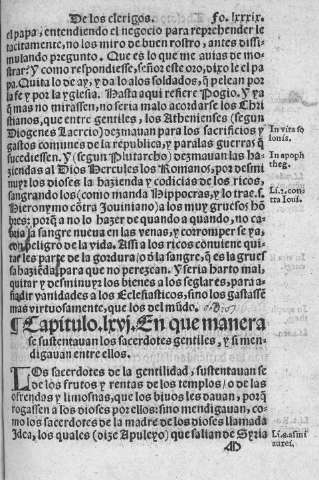 De los clerigos. Fo. lxxxix.
el papa, entendiendo el negocio para reprehender le
tacitamente, no los miro de buen rostro, antes dissi
mulando pregunto. Que es lo que me auias de mos-
trar? Y como respondiesse, señor este oro, dixo le el pa
pa. Quita lo de ay, y da lo a los soldados, q̃ pelean por
la fe y por la yglesia. Hasta aqui refiere Pogio. Y ya
q̃ mas no mirassen, no seria malo acordarse los Chri
stianos, que entre gentiles, los Athenienses (segun
Diogenes Laercio) dezmauan para los sacrificios y
gastos comunes de la republica, y para las guerras q̃
sucediessen. Y (segun Plutarcho) dezmauan las ha-
ziendas al Dios Hercules los Romanos, por desmi
nuyr los dioses la hazienda y codicias de los ricos,
sangrando los (como manda Hippocras, y lo trae. s.
Hieronymo cõtra Jouiniano) a los muy gruesos hõ
bres: porq̃ a no lo hazer de quando a quando, no ca-
bria la sangre nueua en las venas, y corromper se ya,
con peligro de la vida. Assi a los ricos conuiene qui-
tar les parte de la gordura / o d̃ la sangre, q̃ es la gruef
sa haziẽda, para que no perezcan. Y seria harto mal,
quitar y desminuyr los bienes a los seglares, para a-
ñadir vanidades a los Eclesiasticos, sino los gastassẽ
mas virtuosamente, que los del mũdo.
¶ Capitulo. lxvj. En que manera
se sustentauan los sacerdotes gentiles, y si men-
digauan entre ellos.
LOs sacerdotes de la gentilidad, sustentauan se
de los frutos y rentas de los templos / o de las
ofrendas y limosnas, que los biuos les dauan, porq̃
rogassen a los dioses por ellos: sino mendigauan, co-
mo los sacerdotes de la madre de los dioses llamada
Idea, los quales (dize Apuleyo) que salian de Syria
In vita so
lonis.
In apoph
theg.
Li. 2. con-
tra Ioui.
Li. 8. asini
aurei.